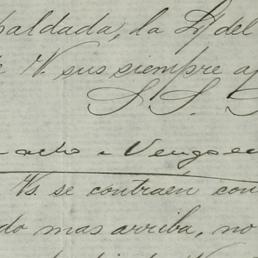 paldada, la Q. del
V. sus siempre a
S. S.
acto a Vengo e
Vs. se contraen con
do mas arriba, no